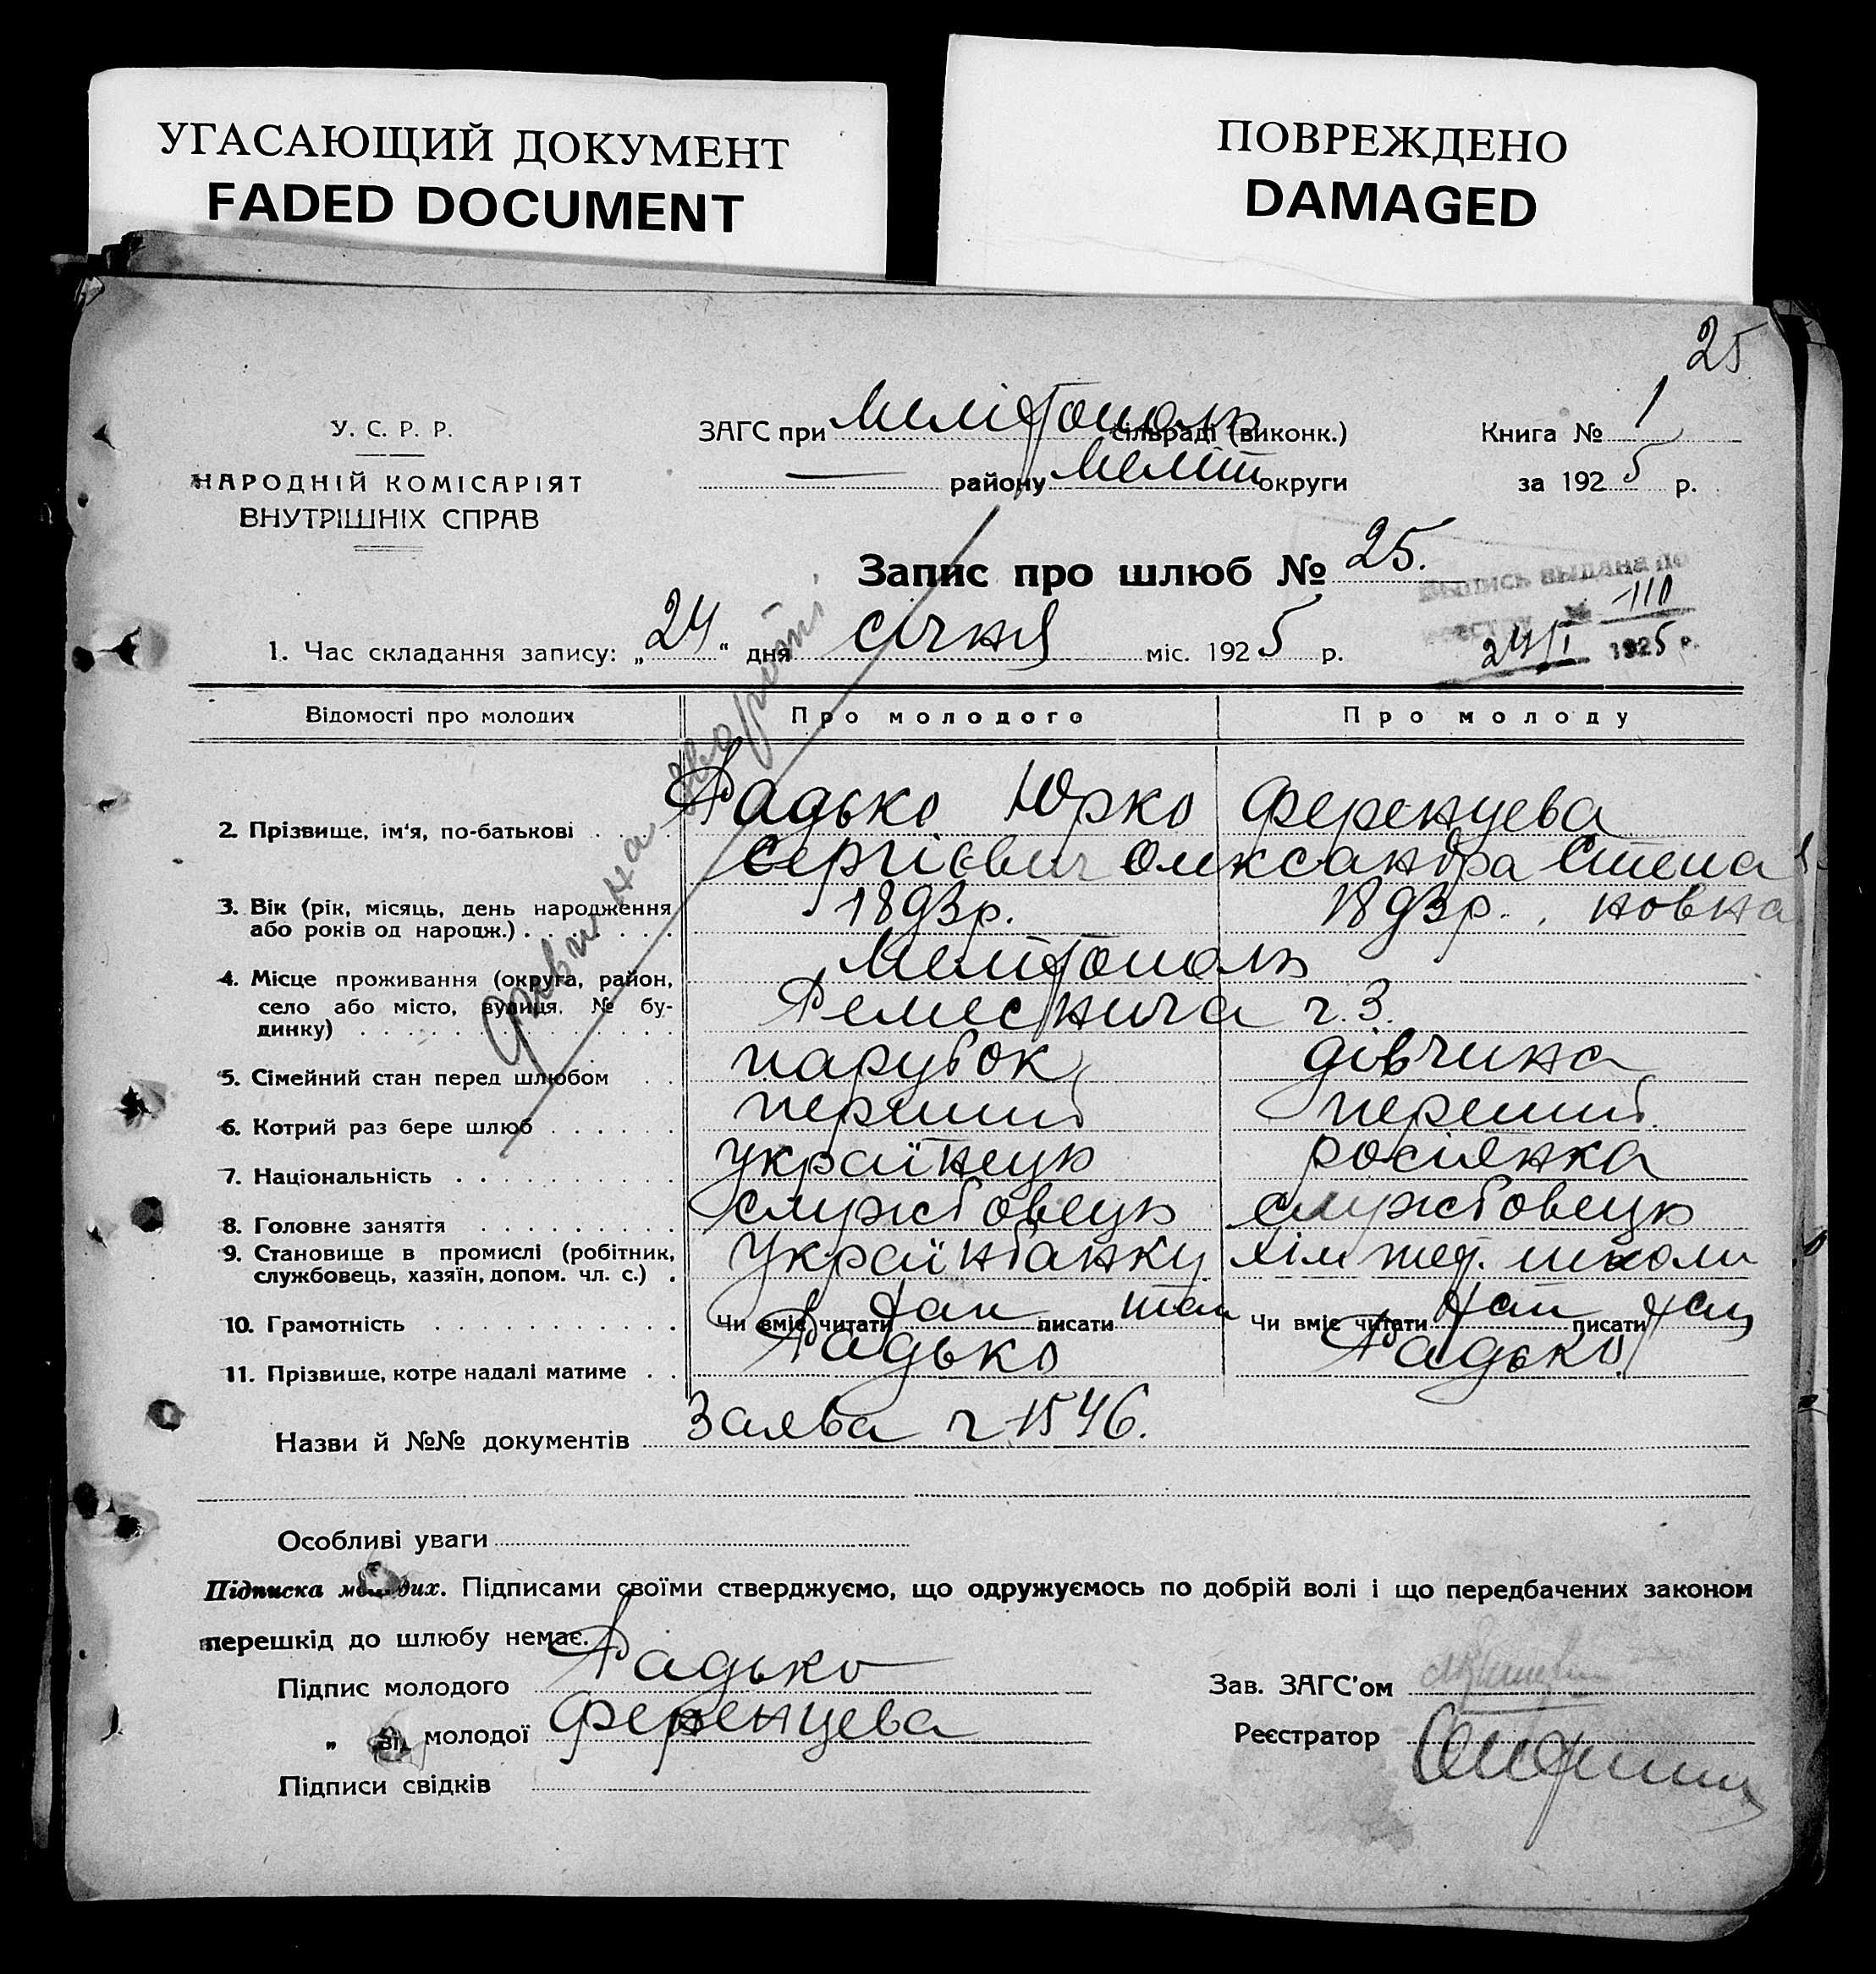 УГАСАЮЩИЙ ДОКУМЕНТ
FADED DOCUMENT
ПОВРЕЖДЕНО
DAMAGED
25
У. С. Р. Р.
НАРОДНІЙ КОМІСАРІЯТ
ВНУТРІШНІХ СПРАВ
ЗАГС при Мелітополь сільраді (виконк.)
— району Меліт округи
Книга № 1
за 1925 р.
Запис про шлюб № 25.
выдана по
№ 110
24/I 1925 р.
1. Час складання запису: „24“ дня січня міс. 1925 р.
Дивини на звороті
Відомості про молодих Про молодого Про молоду
2. Прізвище, ім'я, по-батькові . . . Радько Юрко Ференцева
Сергієвич Олександра Степа
3. Вік (рік, місяць, день народження 1893р. 1893р. новна
або років од народж.) . . . . . . .
4. Місце проживання (округа, район, Мелітополь
село або місто, вулиця, № бу- Ремеснича ч. 3.
динку) . . . . . . . . . . . . . .
5. Сімейний стан перед шлюбом . . парубок дівчина
6. Котрий раз бере шлюб . . . . . . перший перший
7. Національність . . . . . . . . . українець росіянка
8. Головне заняття . . . . . . . . . службовець службовець
9. Становище в промислі (робітник, Українбанку школи
службовець, хазяїн, допом. чл. с.) .
10. Грамотність . . . . . . . . . . . Чи вміє читати так писати так Чи вміє читати так писати так
11. Прізвище, котре надалі матиме . . Радько Радько
Назви й №№ документів Заява ч 1546.
Особливі уваги
Підписка молодих. Підписами своїми стверджуємо, що одружуємось по добрій волі і що передбачених законом
перешкід до шлюбу немає.
Підпис молодого Радько
Зав. ЗАГС'ом
„ молодої Ференцева
Реєстратор
Підписи свідків